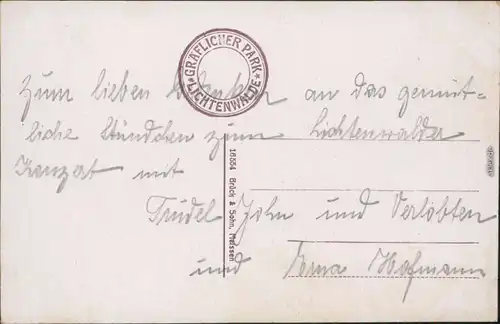 GRÄFLICHER PARK
* LICHTENWALDE *
Zum lieben Gedenken an das gemüt-
liche Stündchen zum Lichtenwalder
Konzert mit
Trudel John und Verlobten
und Erna Hofmann
16554 Brück & Sohn, Meissen